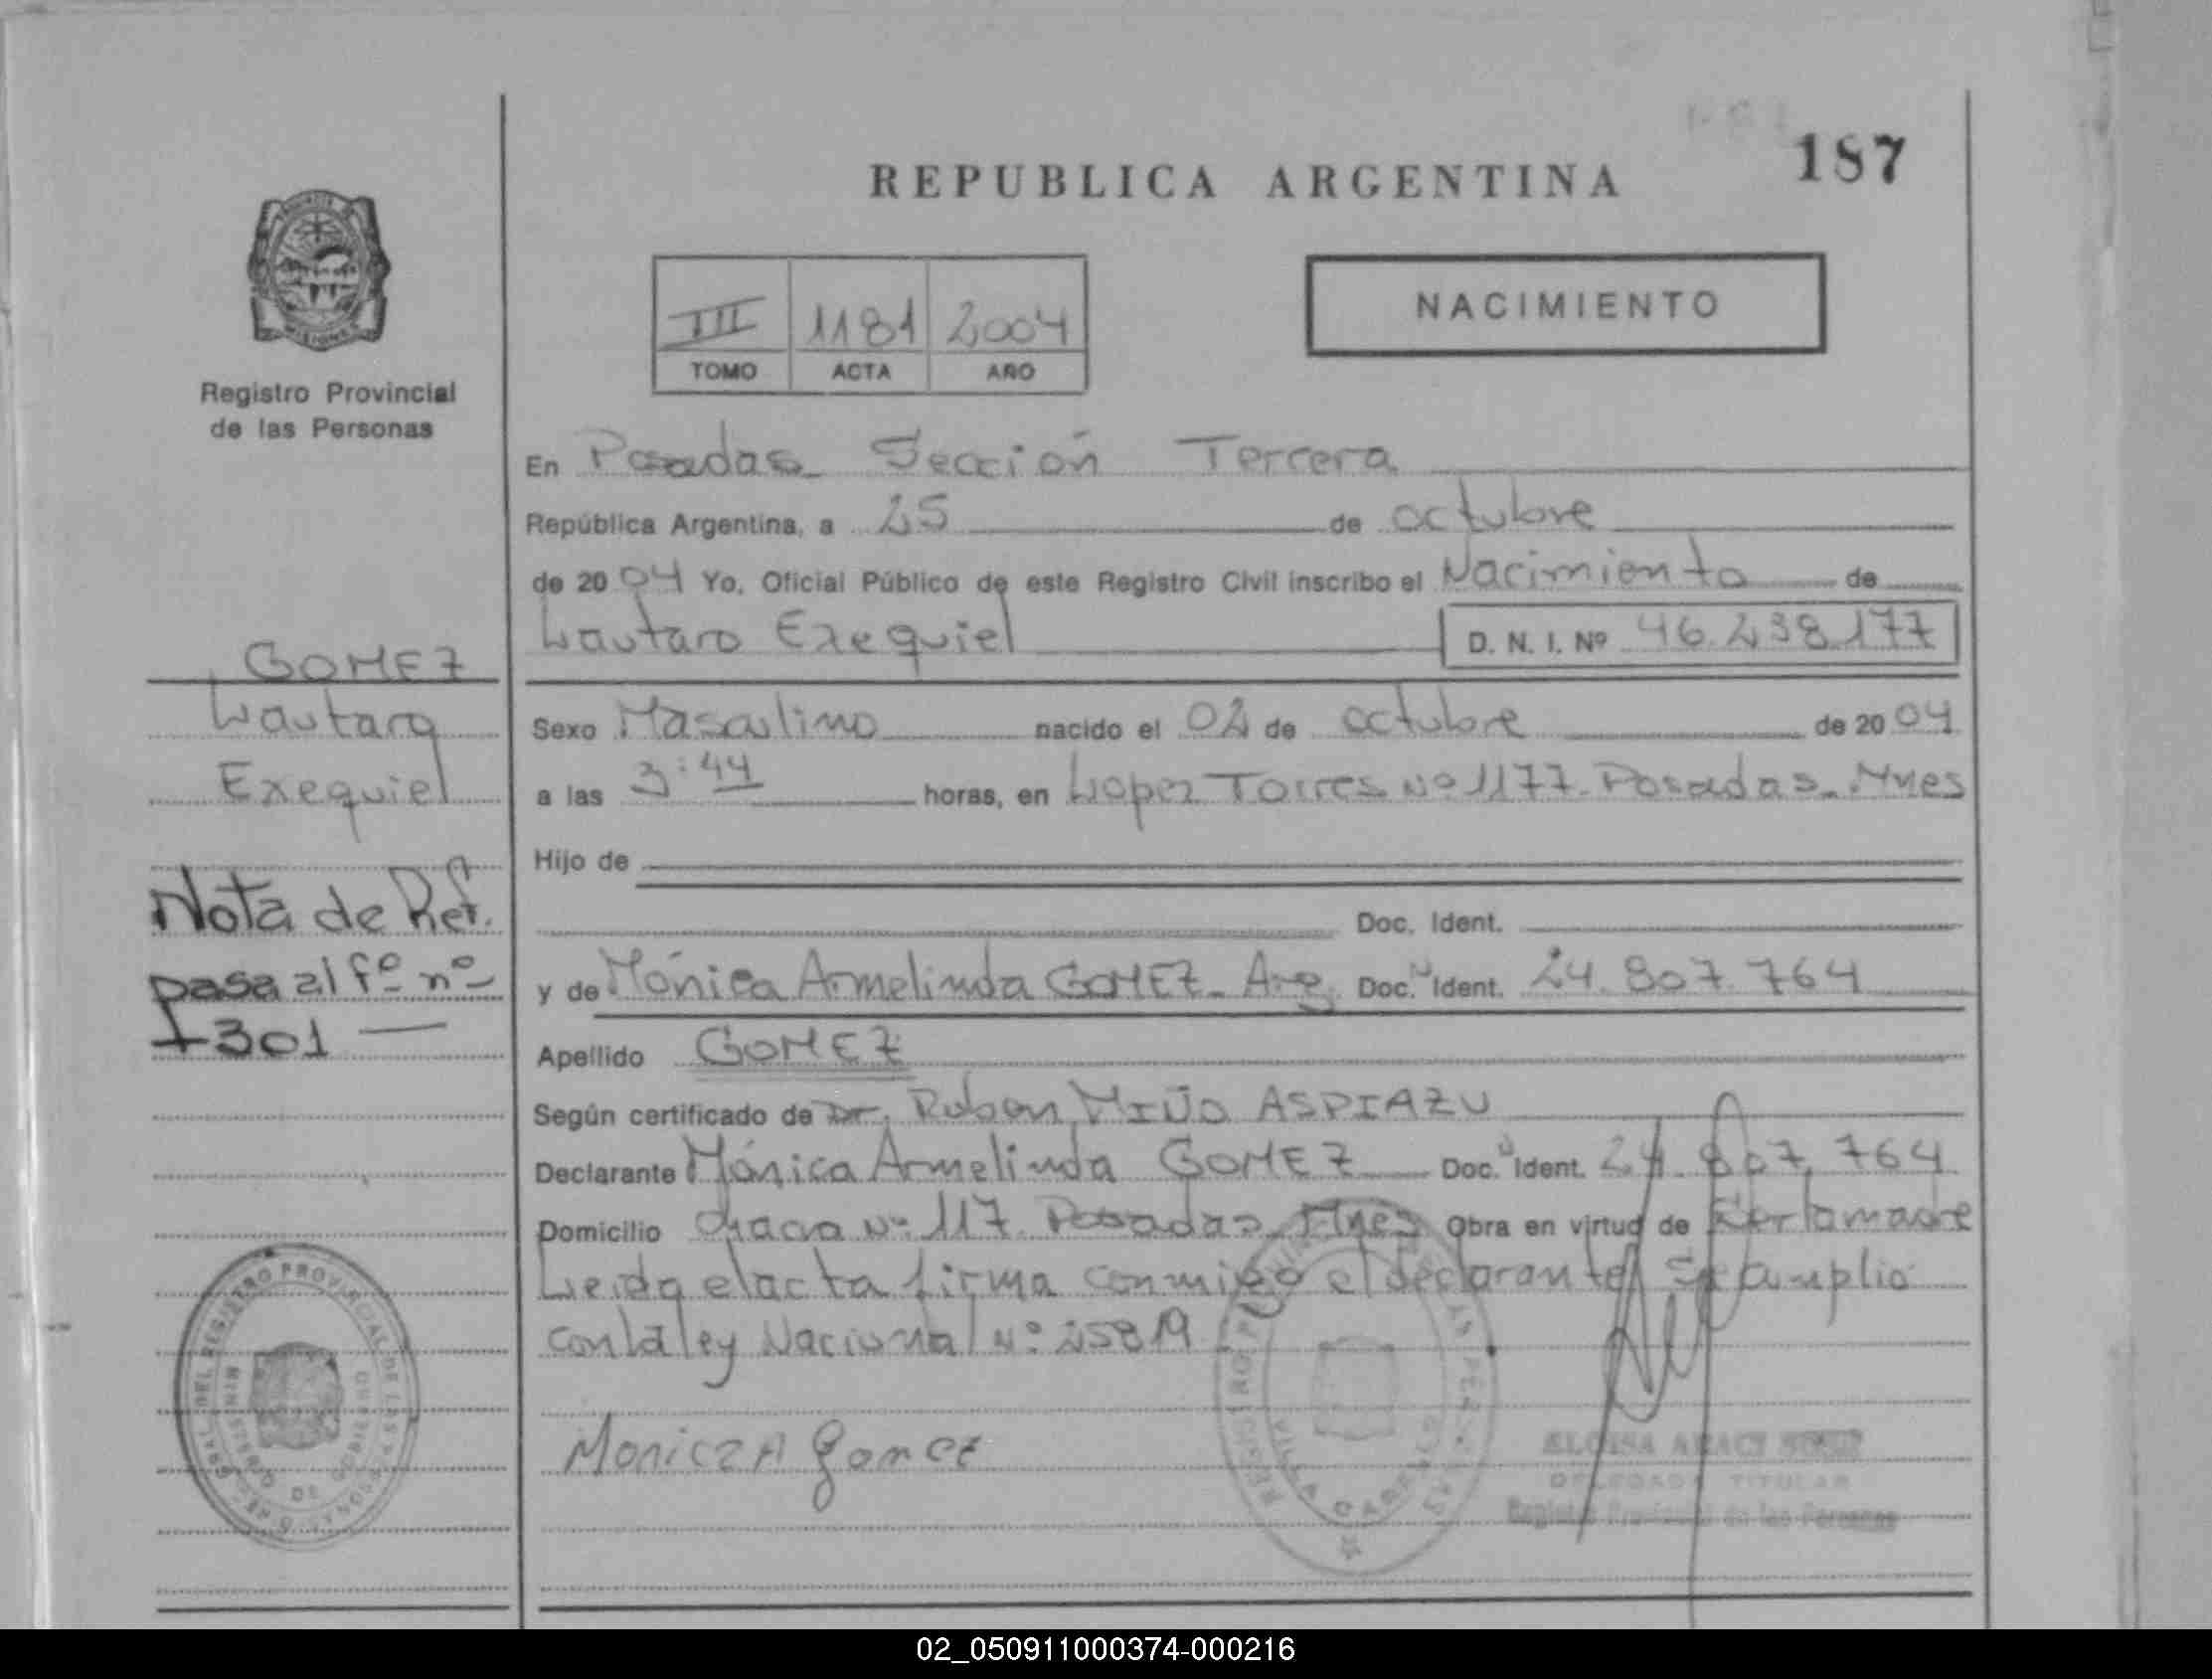 187
REPUBLICA ARGENTINA
III 1181 2004
TOMO ACTA AÑO
NACIMIENTO
Registro Provincial
de las Personas
En Posadas Sección Tercera
República Argentina, a 25 de octubre
de 2004 Yo, Oficial Público de este Registro Civil inscribo el Nacimiento de
Lautaro Exequiel D. N. I. Nº 46.238.177
GOMEZ
Lautaro
Exequiel
Sexo Masculino nacido el 02 de octubre de 2004
a las 3:44 horas, en Lopez Torres Nº 1177. Posadas. Mnes
Hijo de
Doc. Ident.
Nota de Ref.
pasa al fº nº
301
y de Mónica Armelinda GOMEZ - Arg. Doc. Ident. 24.807.764
Apellido GOMEZ
Según certificado de Dr. Ruben MIÑO ASPIAZU
Declarante Mónica Armelinda GOMEZ Doc. Ident. 24.807.764
Domicilio chacra Nº 117. Posadas, Mnes Obra en virtud de ser la madre
Leida el acta firma conmigo el declarante Se cumplio
con la ley Nacional Nº 25819
Monica A Gomez
REGISTRO PROVINCIAL DE LAS PERSONAS
MINISTERIO DE GOBIERNO
VILLA CABELLO
ELOISA ARACI
DELEGADA TITULAR
Registro Provincial de las Personas
02_050911000374-000216